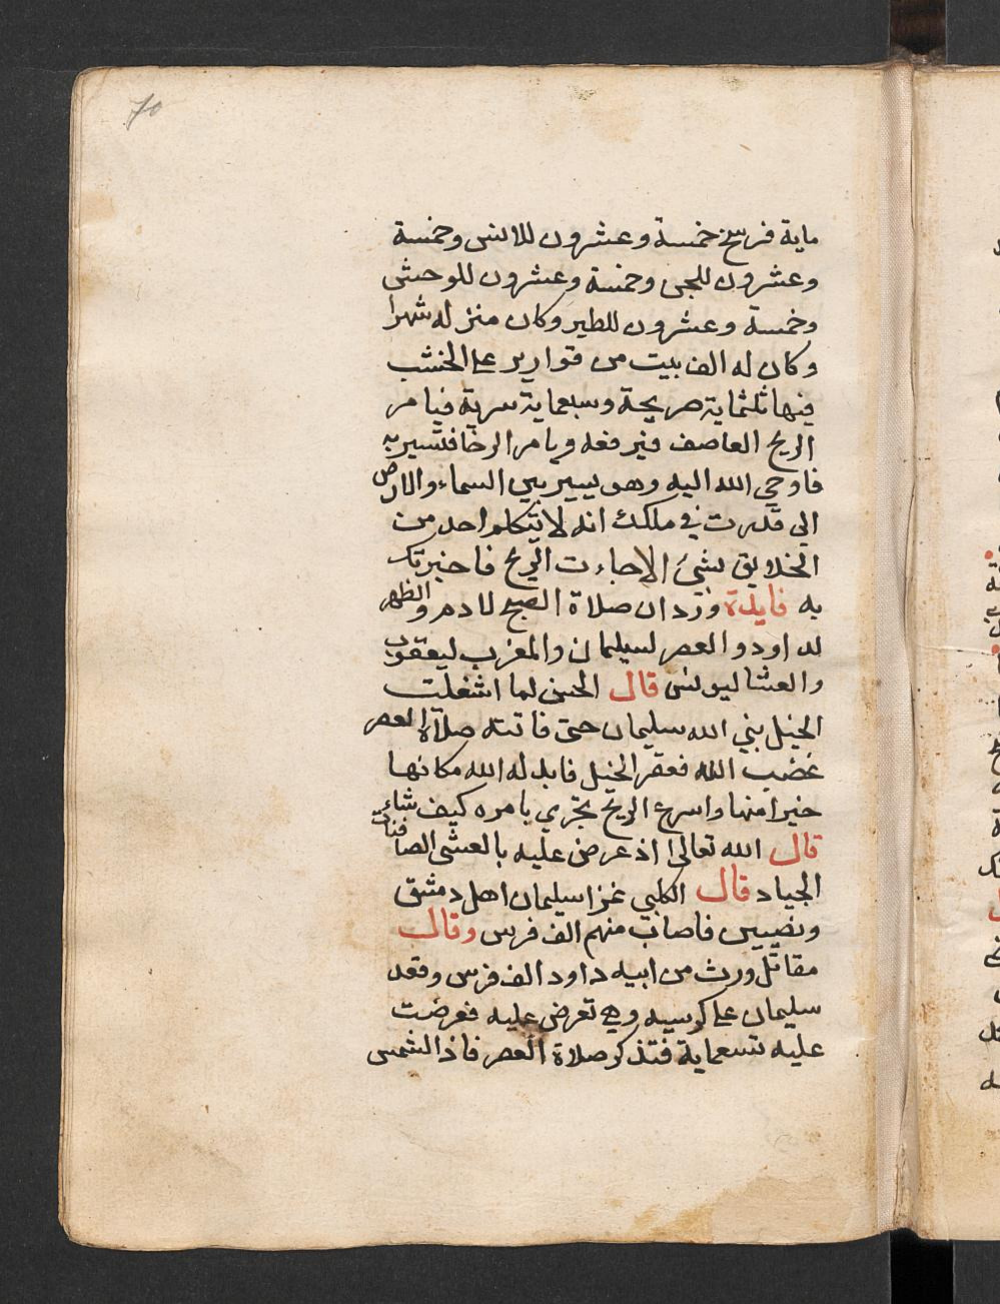 70
ماية فرسخ خمسة وعشرون للانس وخمسة
وعشرون للجن وخمسة وعشرون للوحش
وخمسة وعشرون للطير وكان منزله شهرا
وكان له الف بيت من قوارير على الخشب
فيها ثلثماية صريحة وسبعماية سرية فيامر
الريح العاصف فيرفعه ويامر الرخا فتسير به
فاوحي الله اليه وهو يسير بين السماء والارض
اني قد زدت في ملكك انه لا يتكلم احد من
الخلايق بشئ الا جاءت الريح فاخبرتك
به فايدة ورد ان صلاة الصبح لادم والظهر
لداود والعصر لسليمان والمغرب ليعقوب
والعشا ليونس قال الحسن لما اشغلت
الخيل نبي الله سليمان حتى فاتته صلاة العصر
غضب الله فعقر الخيل فابدله الله مكانها
خيرا منها واسرع الريح تجري بامره كيف شاء
قال الله تعالى اذ عرض عليه بالعشى الصافنات
الجياد قال الكلبي غزا سليمان اهل دمشق
ونصيبين فاصاب منهم الف فرس وقال
مقاتل ورث من ابيه داود الف فرس وقعد
سليمان على كرسيه وهي تعرض عليه فعرضت
عليه تسعماية فتذكر صلاة العصر فاذا الشمس